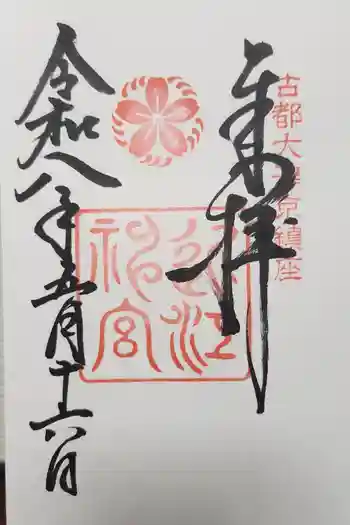 古都大津京鎮座
奉拝
近江
神宮
令和八年五月十六日